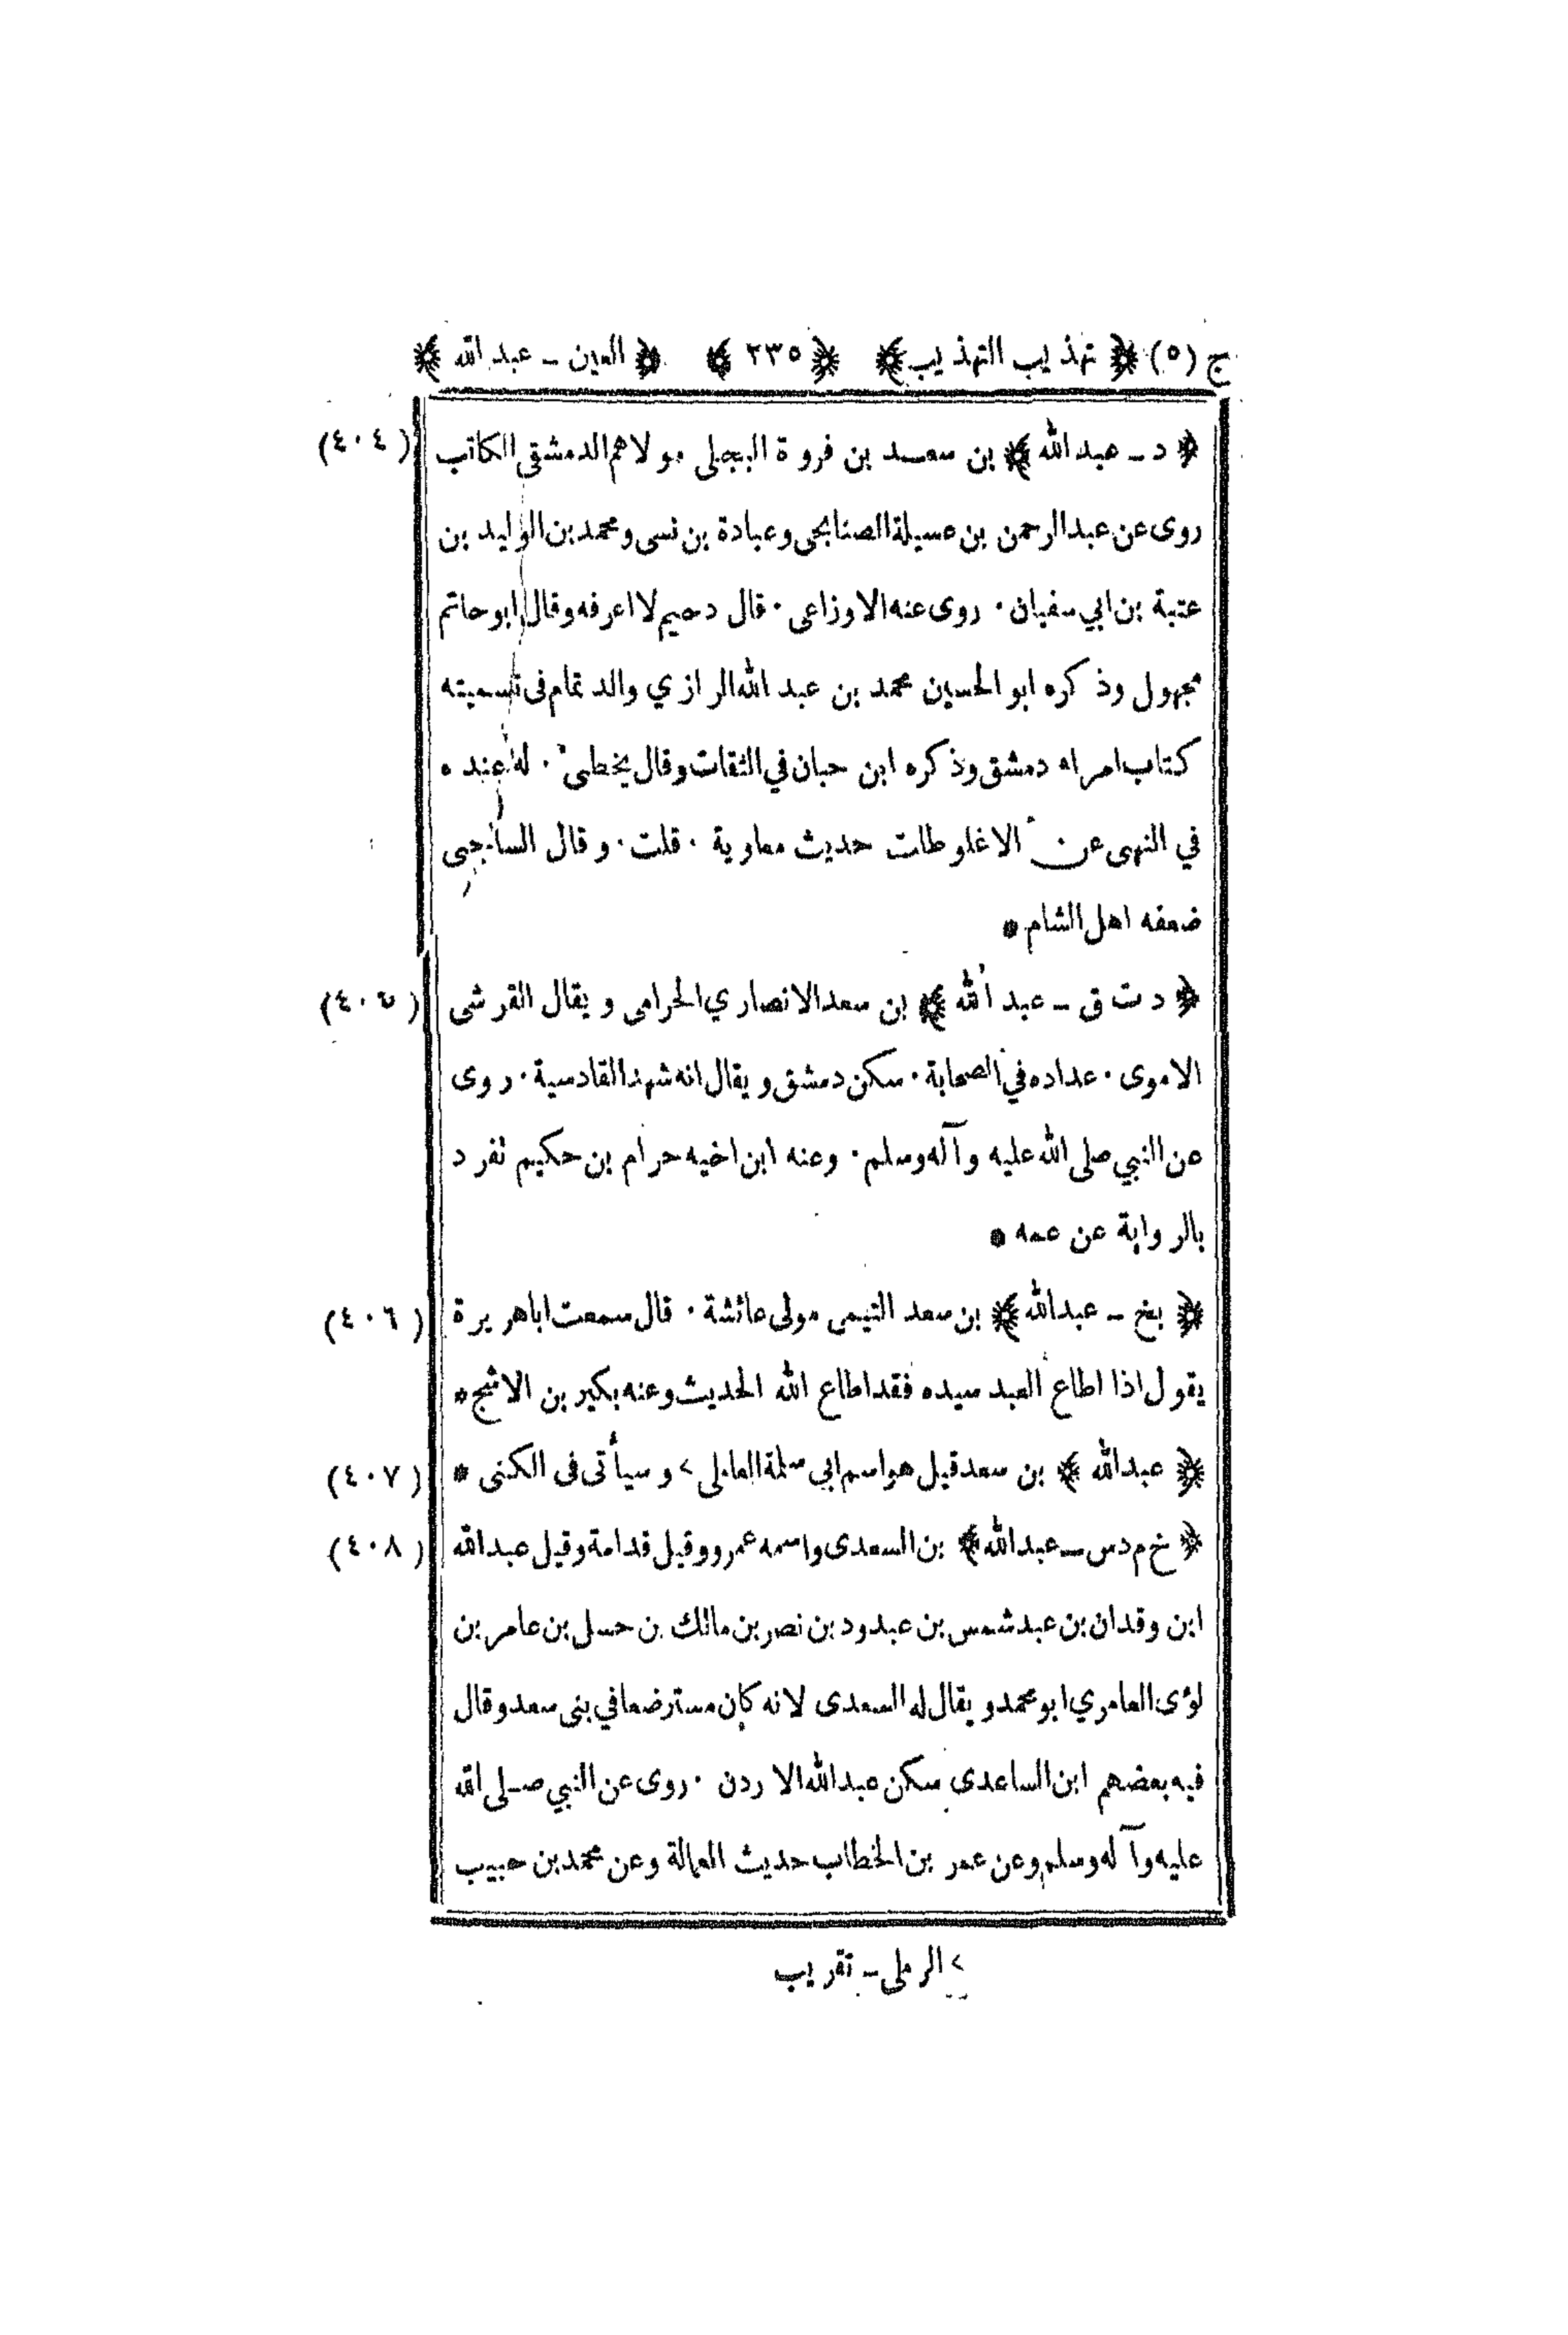 ج (٥) ﴿ تهذيب التهذيب ﴾ ﴿ ٢٣٥ ﴾ ﴿ العين - عبد الله ﴾
﴿ د - عبد الله ﴾ بن سعد بن فروة البجلى مولاهم الدمشقى الكاتب (٤٠٤)
روى عن عبد الرحمن بن عسيلة الصنابحى وعبادة بن نسى ومحمد بن الوليد بن
عتبة بن ابي سفيان . روى عنه الاوزاعى . قال دحيم لا اعرفه وقال ابو حاتم
مجهول وذكره ابو الحسين محمد بن عبد الله الرازي والد تمام فى تسميته
كتاب امراء دمشق وذكره ابن حبان في الثقات وقال يخطىء . له عنده
في النهى عن الاغلوطات حديث معاوية . قلت . وقال الساجى
ضعفه اهل الشام *
﴿ د ت ق - عبد الله ﴾ بن سعد الانصاري الحرامى ويقال القرشى (٤٠٥)
الاموى . عداده في الصحابة . سكن دمشق ويقال انه شهد القادسية . روى
عن النبي صلى الله عليه وآله وسلم . وعنه ابن اخيه حرام بن حكيم تفرد
بالرواية عن عمه *
﴿ بخ - عبد الله ﴾ بن سعد التيمى مولى عائشة . قال سمعت ابا هريرة (٤٠٦)
يقول اذا اطاع العبد سيده فقد اطاع الله الحديث وعنه بكير بن الاشج *
﴿ عبد الله ﴾ بن سعد قيل هو اسم ابي سلمة العاملى > وسيأتى فى الكنى * (٤٠٧)
﴿ خ م د س - عبد الله ﴾ بن السعدى واسمه عمرو وقيل قدامة وقيل عبد الله (٤٠٨)
ابن وقدان بن عبد شمس بن عبدود بن نصر بن مالك بن حسل بن عامر بن
لؤى العامري ابو محمد ويقال له السعدى لانه كان مسترضعا في بنى سعد وقال
فيه بعضهم ابن الساعدى سكن عبد الله الاردن . روى عن النبي صلى الله
عليه وآله وسلم وعن عمر بن الخطاب حديث العمالة وعن محمد بن حبيب
> الرملى - تقريب